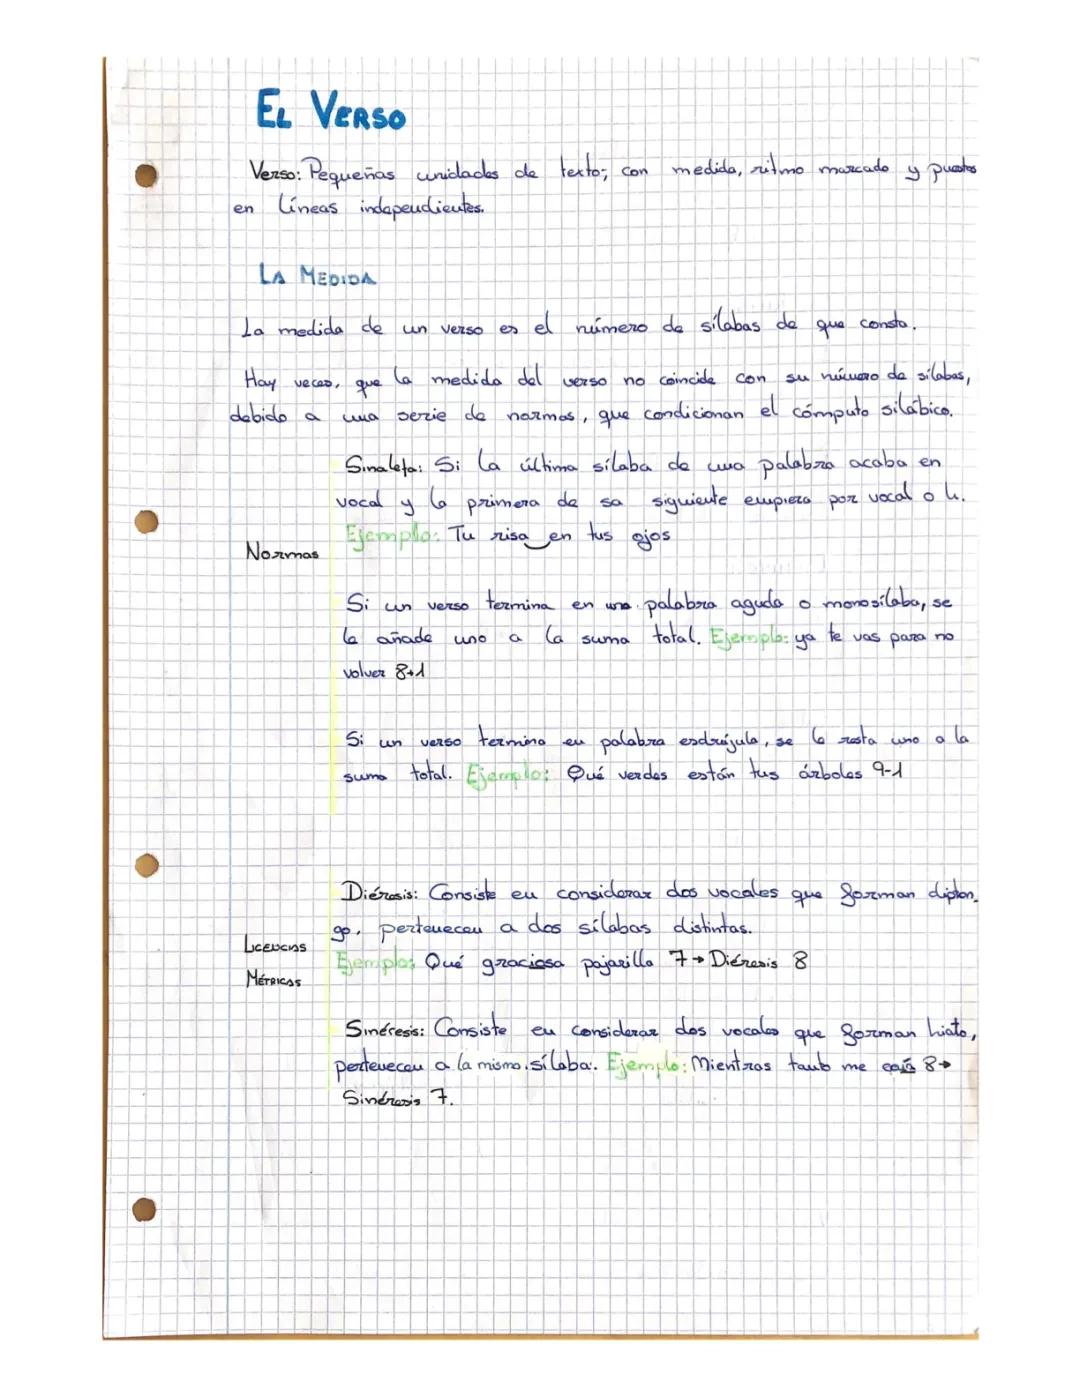 EL VERSO
Verso: Pequeñas unidades de texto; con medida, ritmo marcado y puestos
en líneas independientes.
LA MEDIDA
La medida de un verso es el número de sílabas de que consta.
Hay veces, que la medida del verso no coincide con su número de sílabas,
debido a una serie de normas, que condicionan el cómputo silábico.
Sinalefa: Si la última sílaba de una palabra acaba en
vocal y la primera de sa siguiente empieza por vocal o h.
Ejemplo: Tu risa en tus ojos
Normas
Si un verso termina en una palabra aguda o monosílaba, se
le añade uno a la suma total. Ejemplo: ya te vas para no
volver 8+1
Si un verso termina en palabra esdrújula, se le resta uno a la
suma total. Ejemplo: Qué verdes están tus árboles 9-1
Diéresis: Consiste en considerar dos vocales que forman dipton
go, pertenecen a dos sílabas distintas.
Licencias
Ejemplo: Qué graciosa pajarilla 7→ Diéresis 8
Métricas
Sinéresis: Consiste en considerar dos vocales que forman hiato,
pertenecen a la misma sílaba. Ejemplo: Mientras tanto me caía 8→
Sinéresis 7.